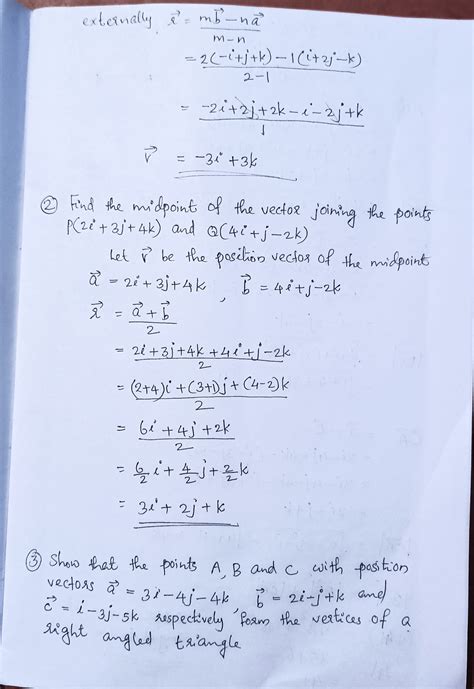 externally, r⃗ = mb⃗ - na⃗ / m-n
= 2(-i+j+k) - 1(i+2j-k) / 2-1
= -2i+2j+2k-i-2j+k / 1
r⃗ = -3i+3k
② Find the midpoint of the vector joining the points
P(2i+3j+4k) and Q(4i+j-2k)
Let r⃗ be the position vector of the midpoint
a⃗ = 2i+3j+4k, b⃗ = 4i+j-2k
r⃗ = a⃗+b⃗ / 2
= 2i+3j+4k+4i+j-2k / 2
= (2+4)i+(3+1)j+(4-2)k / 2
= 6i+4j+2k / 2
= 6/2 i + 4/2 j + 2/2 k
= 3i+2j+k
③ Show that the points A, B and C with position
vectors a⃗ = 3i-4j-4k b⃗ = 2i-j+k and
c⃗ = i-3j-5k respectively, form the vertices of a
right angled triangle